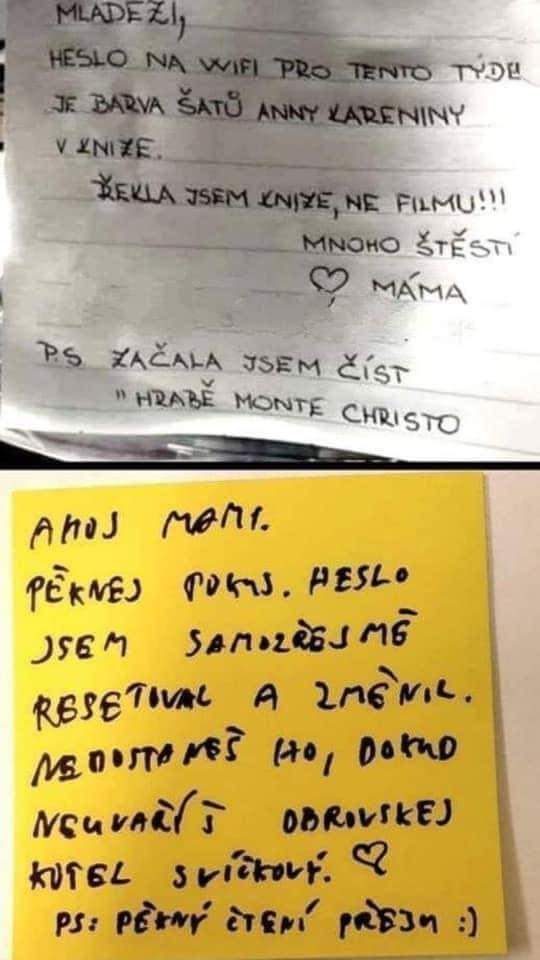 MLÁDEŽI,
HESLO NA WIFI PRO TENTO TÝDEN
JE BARVA ŠATŮ ANNY KARENINY
V KNIZE.
ŘEKLA JSEM KNIZE, NE FILMU!!!
MNOHO ŠTĚSTÍ
♡ MÁMA
P.S. ZAČALA JSEM ČÍST
"HRABĚ MONTE CHRISTO
AHOJ MAMI.
PĚKNEJ POKUS. HESLO
JSEM SAMOZŘEJMĚ
RESETOVAL A ZMĚNIL.
NEDOSTANEŠ HO, DOKUD
NEUVAŘÍŠ OBROVSKEJ
KOTEL SVÍČKOVÝ. ♡
PS: PĚKNÝ ČTENÍ PŘEJU :)